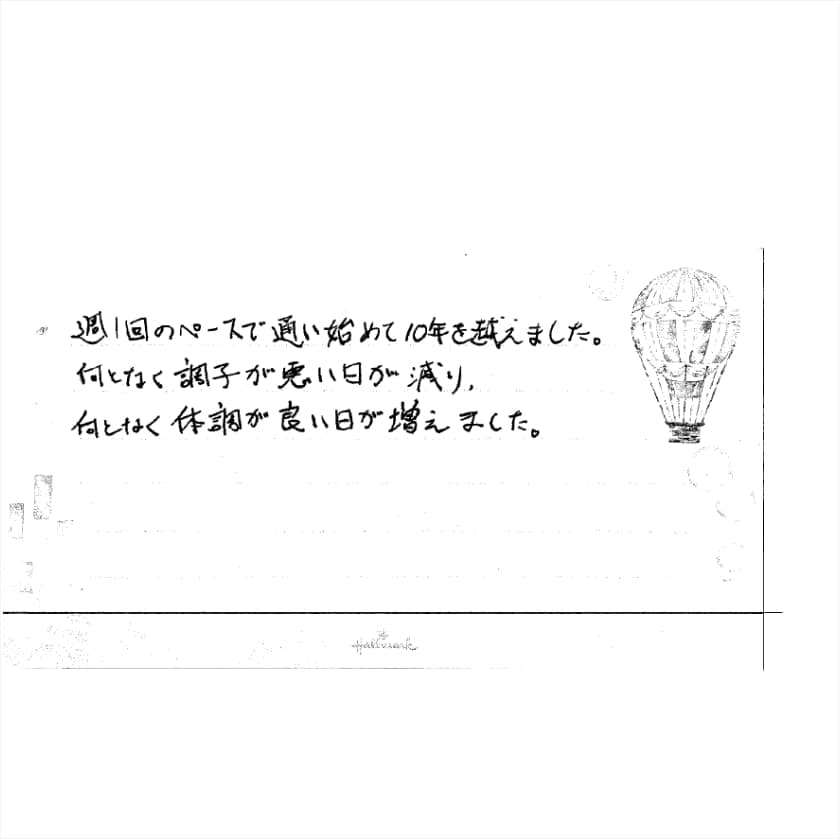 週1回のペースで通い始めて10年を越えました。
何となく調子が悪い日が減り、
何となく体調が良い日が増えました。
Hallmark